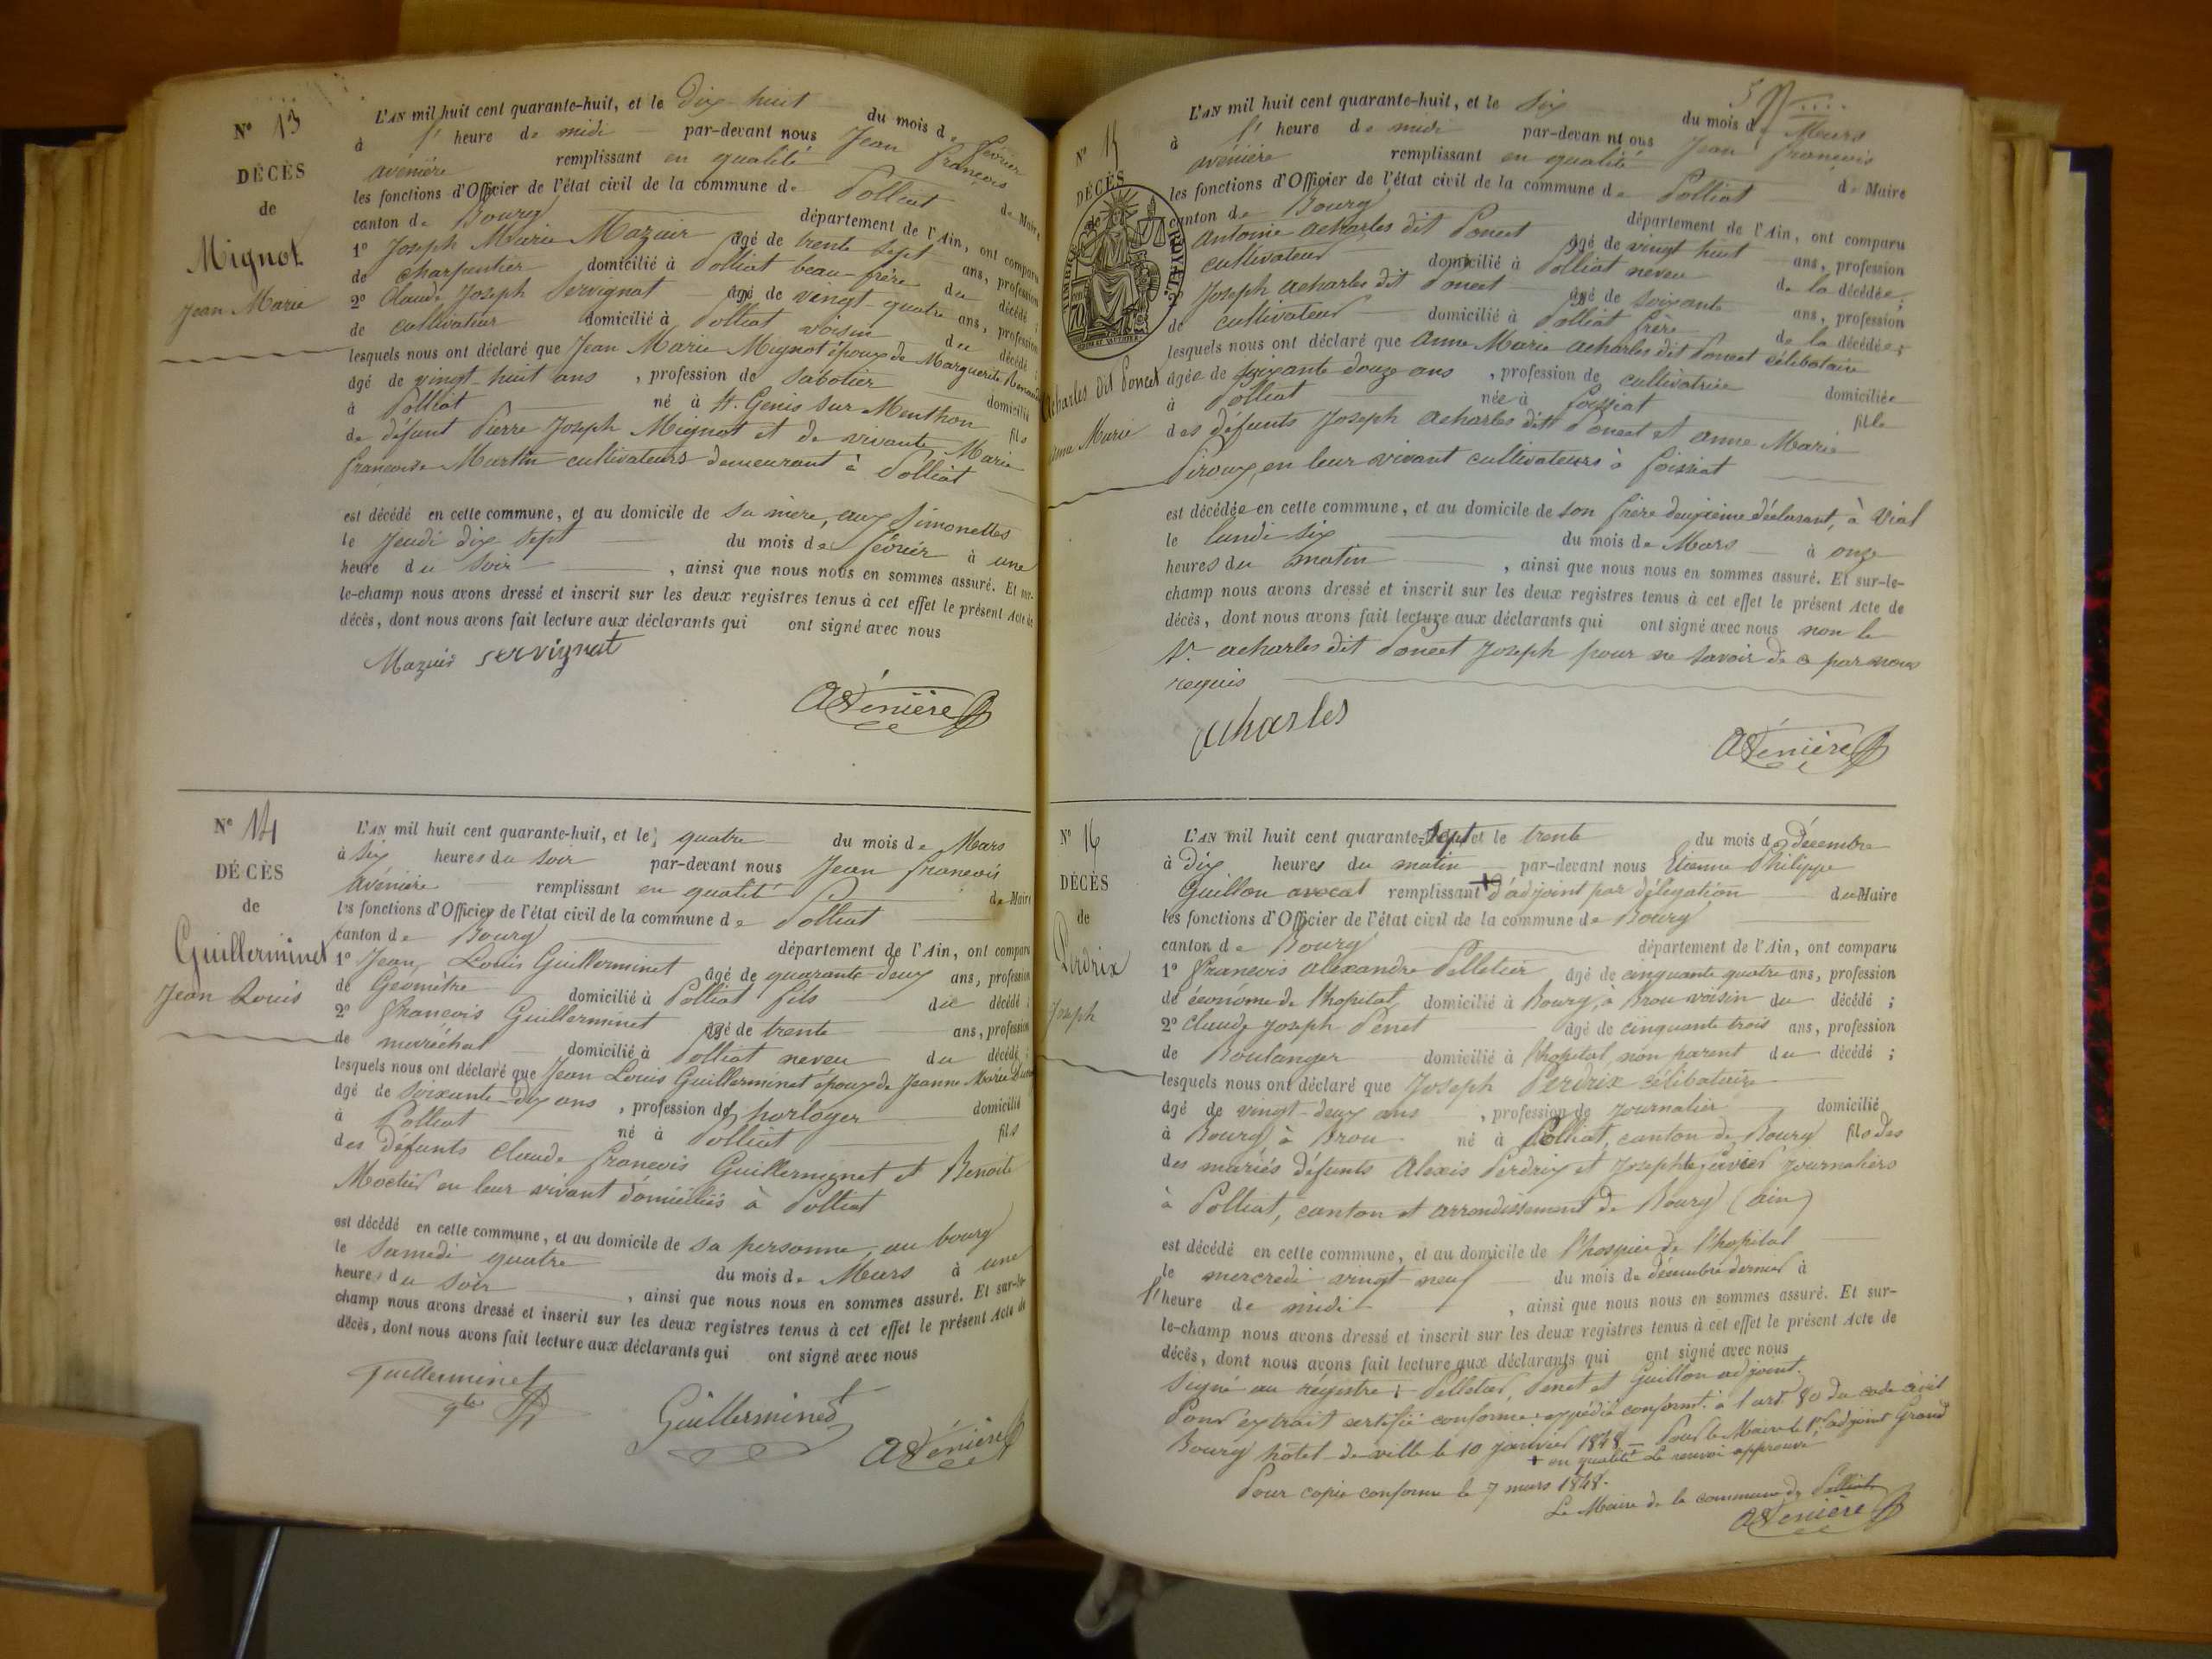 N° 13
DÉCÈS
de
Mignot
Jean Marie
L'AN mil huit cent quarante-huit, et le Dix huit du mois de février
à l' heure de midi par-devant nous Jean françois
avénière remplissant en qualité de Maire
les fonctions d'Officier de l'état civil de la commune de Polliat
canton de Bourg département de l'Ain, ont comparu
1° Joseph Marie Mazuir âgé de trente sept ans, profession
de charpentier domicilié à Polliat beau-frère du décédé ;
2° Claude Joseph Servignat âgé de vingt-quatre ans, profession
de cultivateur domicilié à Polliat voisin du décédé ;
lesquels nous ont déclaré que Jean Marie Mignot époux de Marguerite
âgé de vingt-huit ans , profession de sabotier domicilié
à Polliat né à St. Genis sur Menthon fils
de défunt Pierre Joseph Mignot et de vivante Marie
françoise Martin cultivateurs demeurant à Polliat
est décédé en cette commune, et au domicile de sa mère, aux Simonettes
le Jeudi dix sept du mois de février à une
heure du soir , ainsi que nous nous en sommes assuré. Et sur-
le-champ nous avons dressé et inscrit sur les deux registres tenus à cet effet le présent Acte de
décès, dont nous avons fait lecture aux déclarants qui ont signé avec nous
Mazuir servignat
Avénière
N° 14
DÉCÈS
de
Guillerminet
Jean Louis
L'AN mil huit cent quarante-huit, et le quatre du mois de Mars
à six heures du soir par-devant nous Jean françois
avénière remplissant en qualité de Maire
les fonctions d'Officier de l'état civil de la commune de Polliat
canton de Bourg département de l'Ain, ont comparu
1° Jean Louis Guillerminet âgé de quarante-deux ans, profession
de Géomètre domicilié à Polliat fils du décédé ;
2° François Guillerminet âgé de trente ans, profession
de maréchal domicilié à Polliat neveu du décédé ;
lesquels nous ont déclaré que Jean Louis Guillerminet époux de Jeanne Marie
âgé de soixante-dix ans , profession d'horloger domicilié
à Polliat né à Polliat fils
des défunts Claude françois Guillerminet et Benoite
Moctier en leur vivant domiciliés à Polliat
est décédé en cette commune, et au domicile de sa personne, au bourg
le samedi quatre du mois de Mars à une
heure du soir , ainsi que nous nous en sommes assuré. Et sur-le-
champ nous avons dressé et inscrit sur les deux registres tenus à cet effet le présent Acte de
décès, dont nous avons fait lecture aux déclarants qui ont signé avec nous
Guillerminet
Guilleminet
Avénière
N° 15
DÉCÈS
de
acharles dit Poncet
anne Marie
L'AN mil huit cent quarante-huit, et le six du mois de Mars
à l' heure de midi par-devan nt ous Jean françois
avénière remplissant en qualité de Maire
les fonctions d'Officier de l'état civil de la commune de Polliat
canton de Bourg département de l'Ain, ont comparu
antoine acharles dit Poncet âgé de vingt huit ans, profession
cultivateur domicilié à Polliat neveu de la décédée ;
Joseph acharles dit Poncet âgé de soixante ans, profession
de cultivateur domicilié à Polliat frère de la décédée ;
lesquels nous ont déclaré que anne Marie acharles dit Poncet célibataire
âgée de soixante douze ans , profession de cultivatrice domiciliée
à Polliat née à foissiat fille
des défunts Joseph acharles dit Poncet et anne Marie
Piroux, en leur vivant cultivateurs à foissiat
est décédée en cette commune, et au domicile de son frère deuxième déclarant, à Vial
le lundi six du mois de Mars à onze
heures du matin , ainsi que nous nous en sommes assuré. Et sur-le-
champ nous avons dressé et inscrit sur les deux registres tenus à cet effet le présent Acte de
décès, dont nous avons fait lecture aux déclarants qui ont signé avec nous non le
Sr. acharles dit Poncet Joseph pour ne savoir de ce par nous
requis
acharles
Avénière
N° 16
DÉCÈS
de
Perdrix
Joseph
L'AN mil huit cent quarante-sept et le trente du mois de décembre
à dix heures du matin par-devant nous Etienne Philippe
Guillon avocat remplissant + d'adjoint par délégation du Maire
les fonctions d'Officier de l'état civil de la commune de Bourg
canton de Bourg département de l'Ain, ont comparu
1° François alexandre Pelletier âgé de cinquante quatre ans, profession
de économe de l'hopital domicilié à Bourg, à Brou voisin du décédé ;
2° Claude Joseph Penet âgé de cinquante trois ans, profession
de Boulanger domicilié à l'hopital, non parent du décédé ;
lesquels nous ont déclaré que Joseph Perdrix célibataire
âgé de vingt-deux ans , profession de journalier domicilié
à Bourg, à Brou né à Polliat, canton de Bourg fils des
des mariés défunts Alexis Perdrix et Josephte journaliers
à Polliat, canton et arrondissement de Bourg (ain)
est décédé en cette commune, et au domicile de l'hospice de l'hopital
le mercredi vingt-neuf du mois de décembre dernier à
l' heure de midi , ainsi que nous nous en sommes assuré. Et sur-
le-champ nous avons dressé et inscrit sur les deux registres tenus à cet effet le présent Acte de
décès, dont nous avons fait lecture aux déclarants qui ont signé avec nous
Signé au régistre : Pelletier, Penet et Guillon adjoint.
Pour extrait certifié conforme: expédié conformt. à l'art 80 du code civil
Bourg hôtel-de-ville le 10 janvier 1848 = Pour le Maire le 1er adjoint Grand
+ en qualité Le renvoi approuvé
Pour copie conforme le 7 mars 1848.
Le Maire de la commune de Polliat
Avénière